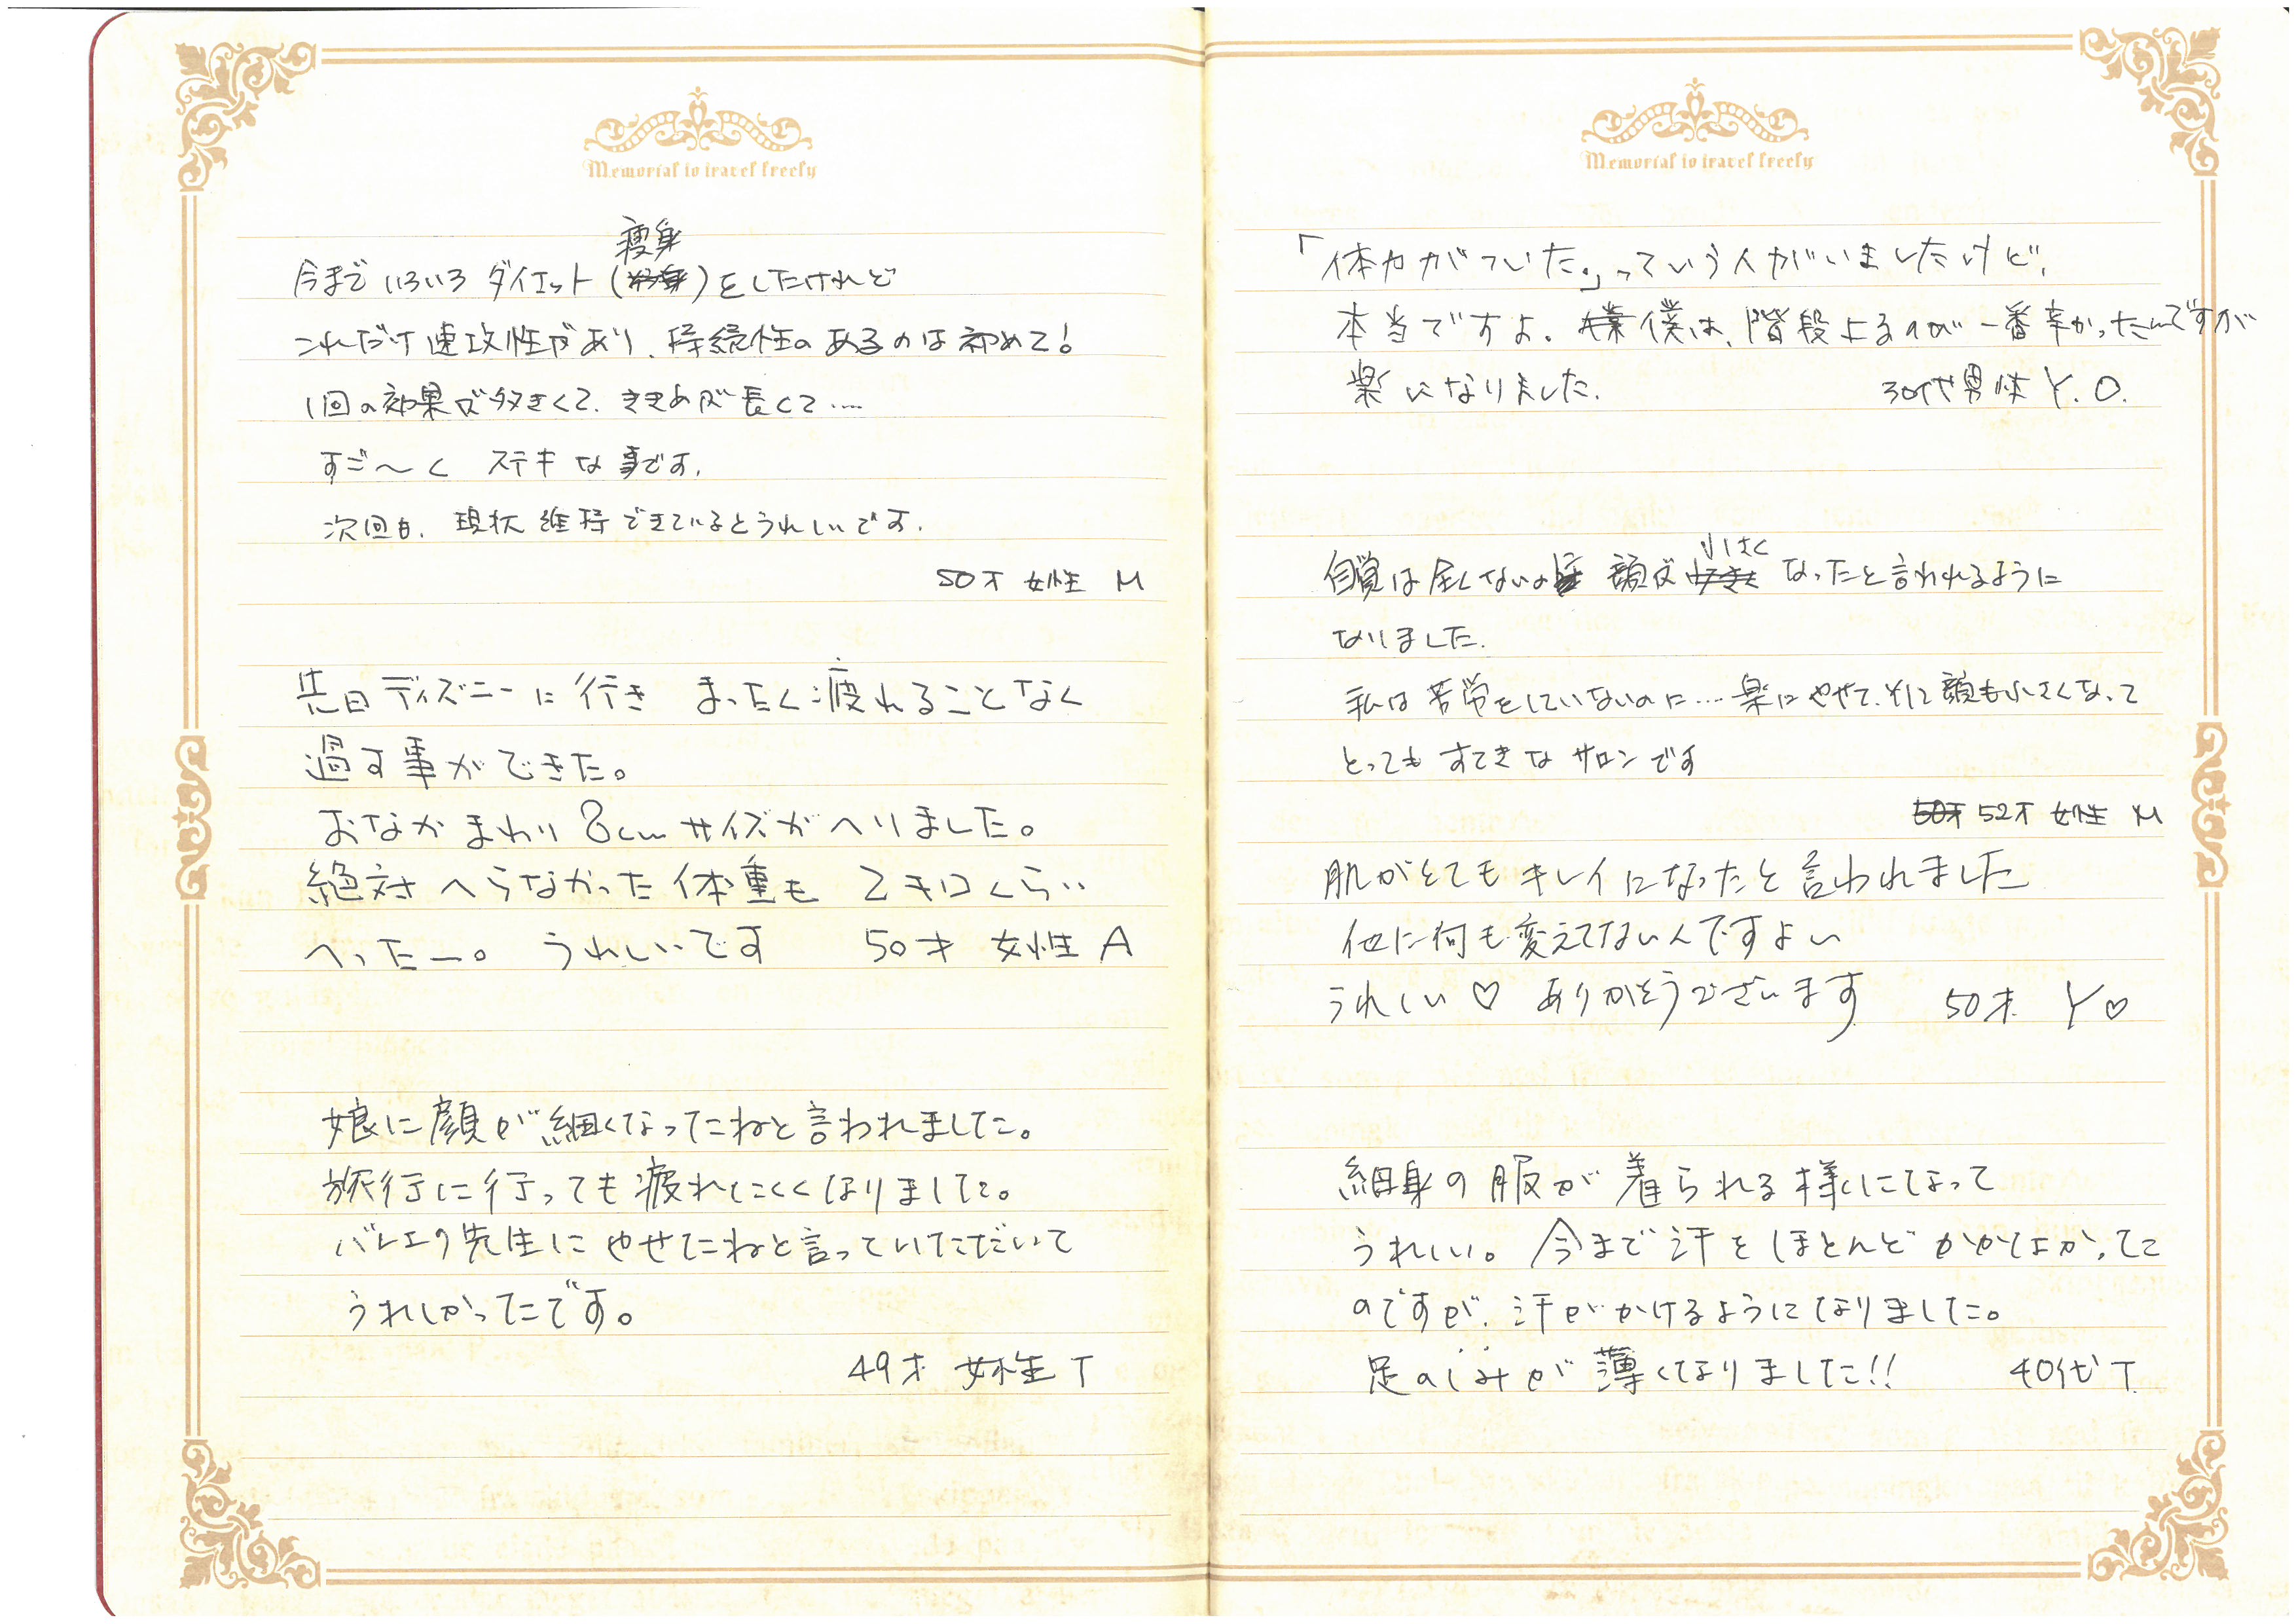 Memorial to travel freely
痩身
今まで いろいろ ダイエット ( )をしたけれど
これだけ速攻性があり、持続性のあるのは初めて!
1回の効果が大きくて、ききめが長くて....
すご〜く ステキな事です.
次回も、現状維持できているとうれしいです.
50才 女性 M
先日 ディズニーに行き まったく疲れることなく
過す事ができた。
おなかまわり 8cm サイズがへりました。
絶対へらなかった体重も 2キロくらい
へったー。 うれしいです 50才 女性 A
娘に顔が細くなったねと言われました。
旅行に行っても疲れにくくなりました。
バレエの先生に やせたねと言っていただいて
うれしかったです。
49才 女性 T
Memorial to travel freely
「体力がついた。」っていう人がいましたけど、
本当ですよ。僕は、階段上るのが一番辛かったんですが
楽になりました. 30代男性 Y.O.
小さく
自覚は全くない 顔が なったと言われるように
なりました.
私は苦労をしていないのに....楽にやせて、そして顔も小さくなって
とっても すてきな サロンです
50才 52才 女性 M
肌がとてもキレイになったと言われました
他に何も変えてないんですよい
うれしい♡ ありがとうございます 50才 Y♡
細身の服が着られる様になって
うれしい。今まで汗をほとんどかかなかった
のですが、汗がかけるようになりました。
足のしみが薄くなりました!! 40代 T.